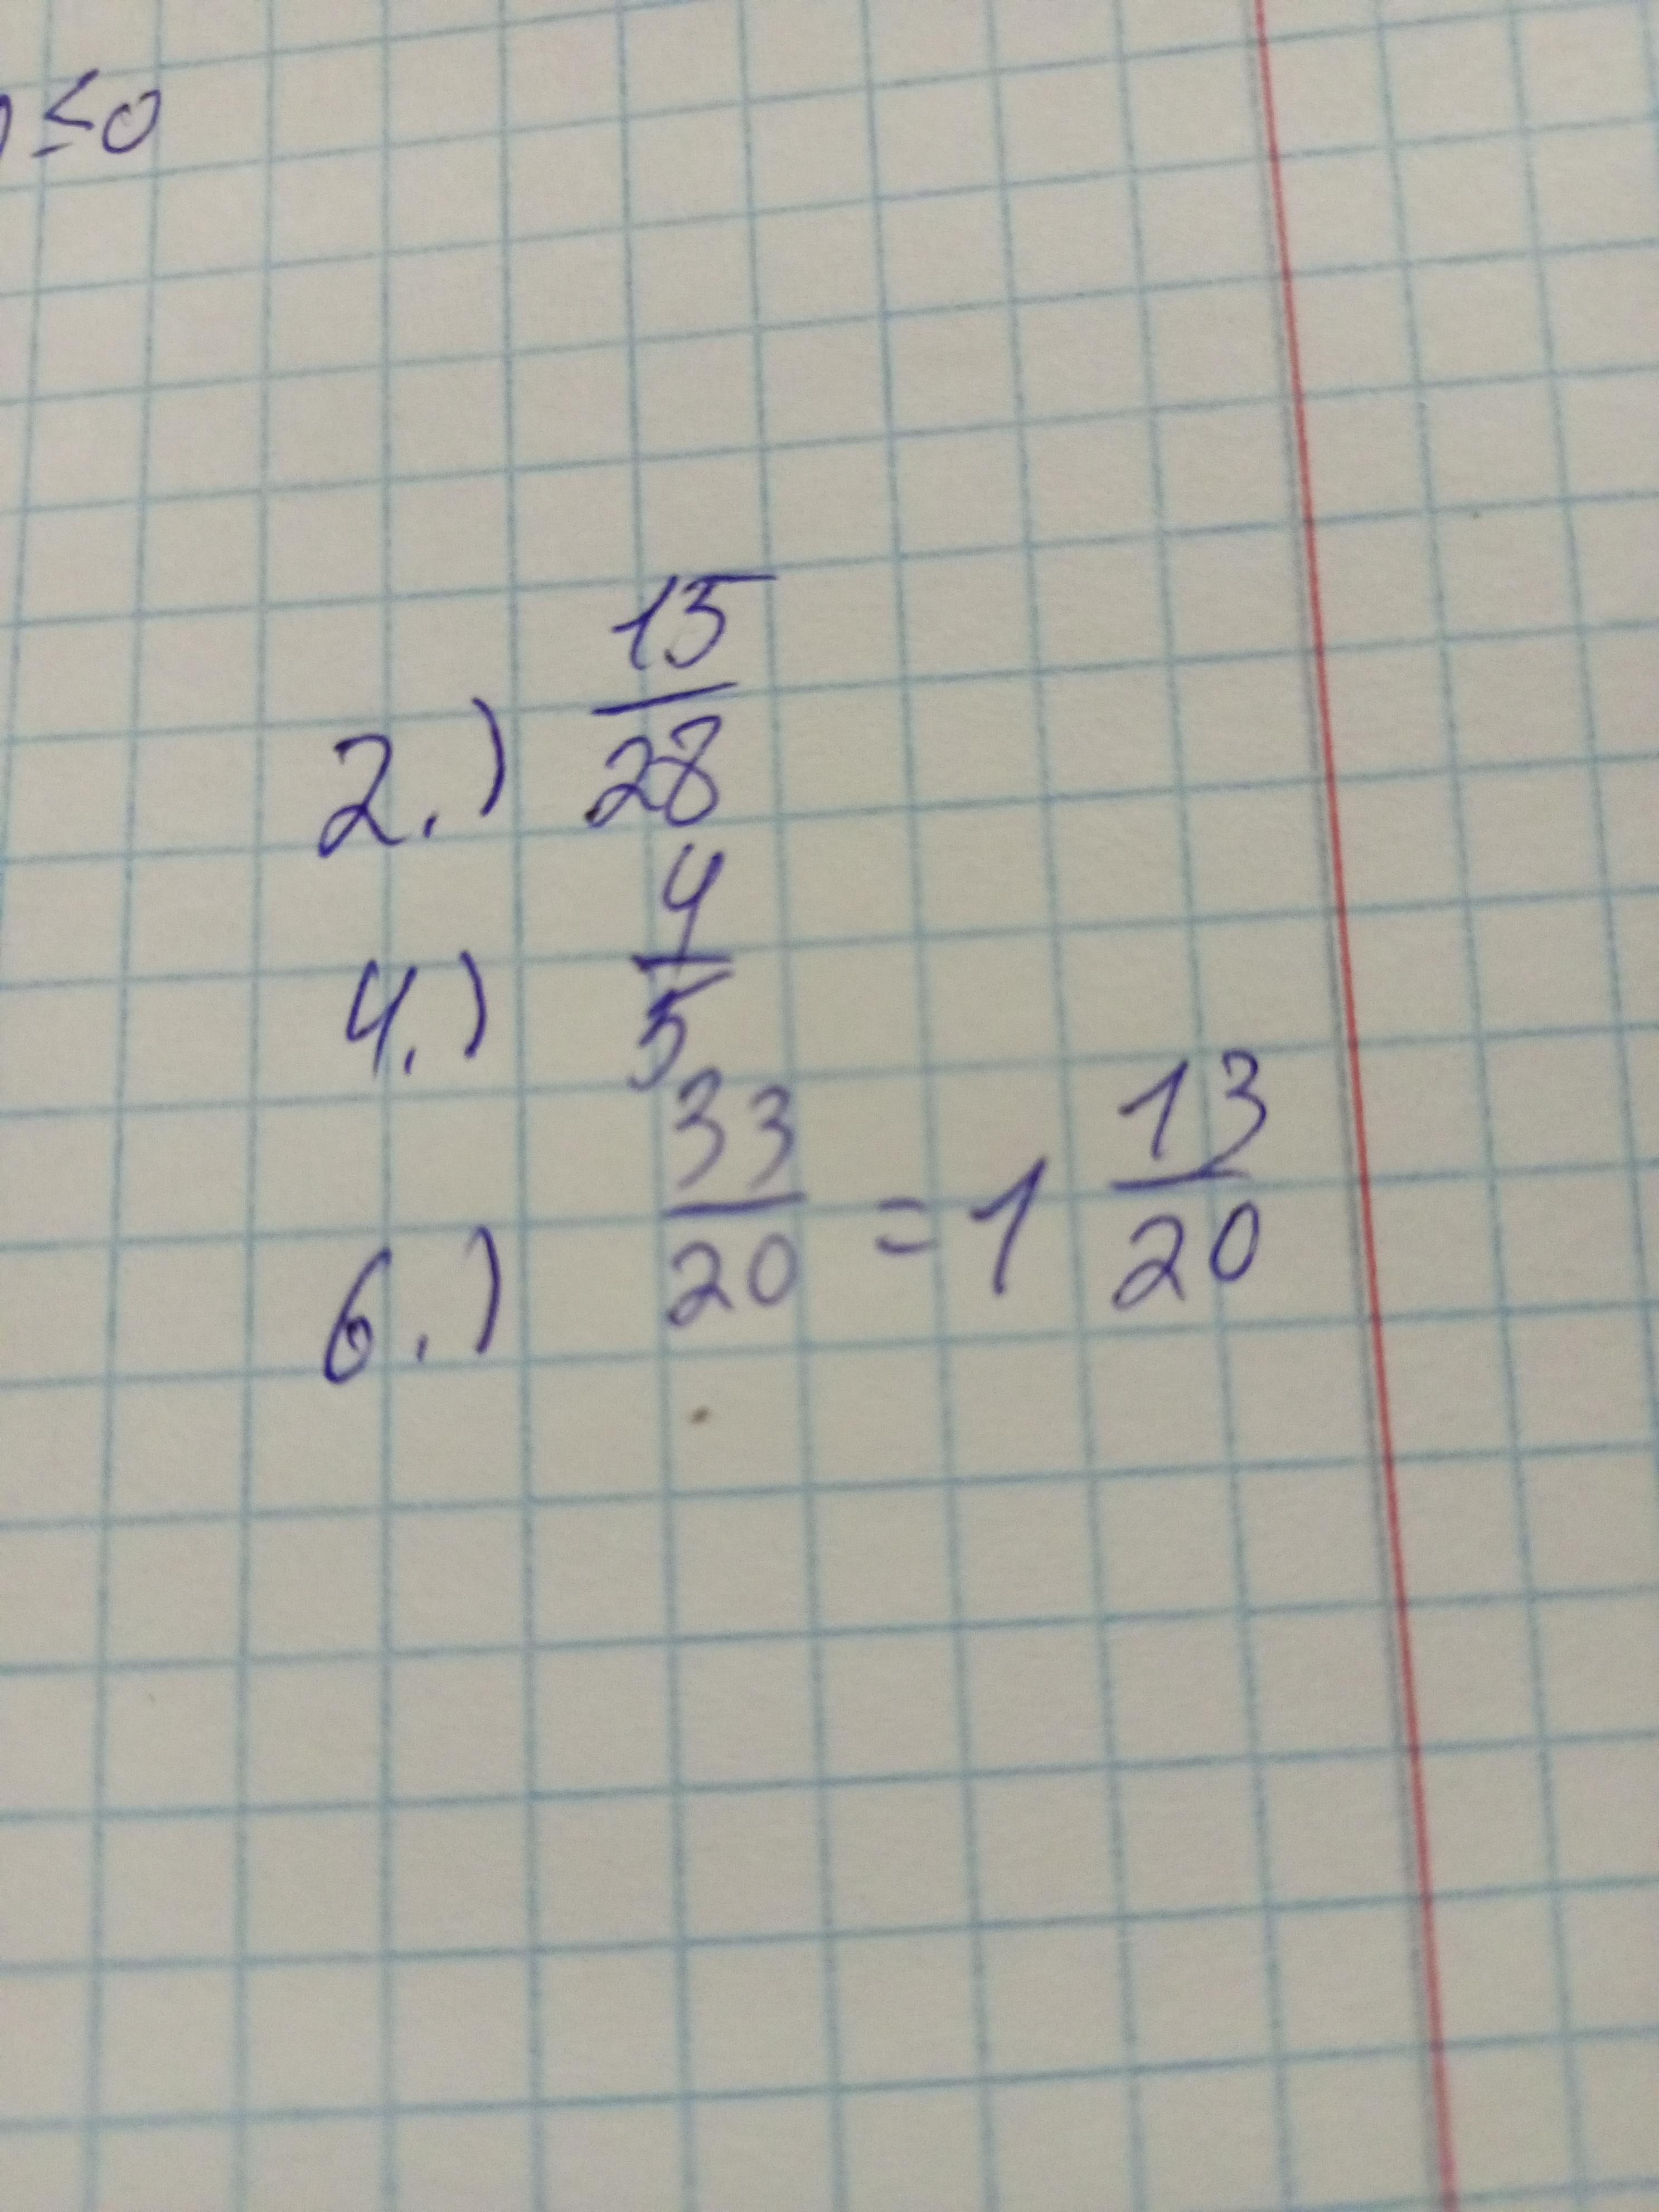 ≤0
2.) 15/28
4.) 4/5
6.) 33/20 = 1 13/20